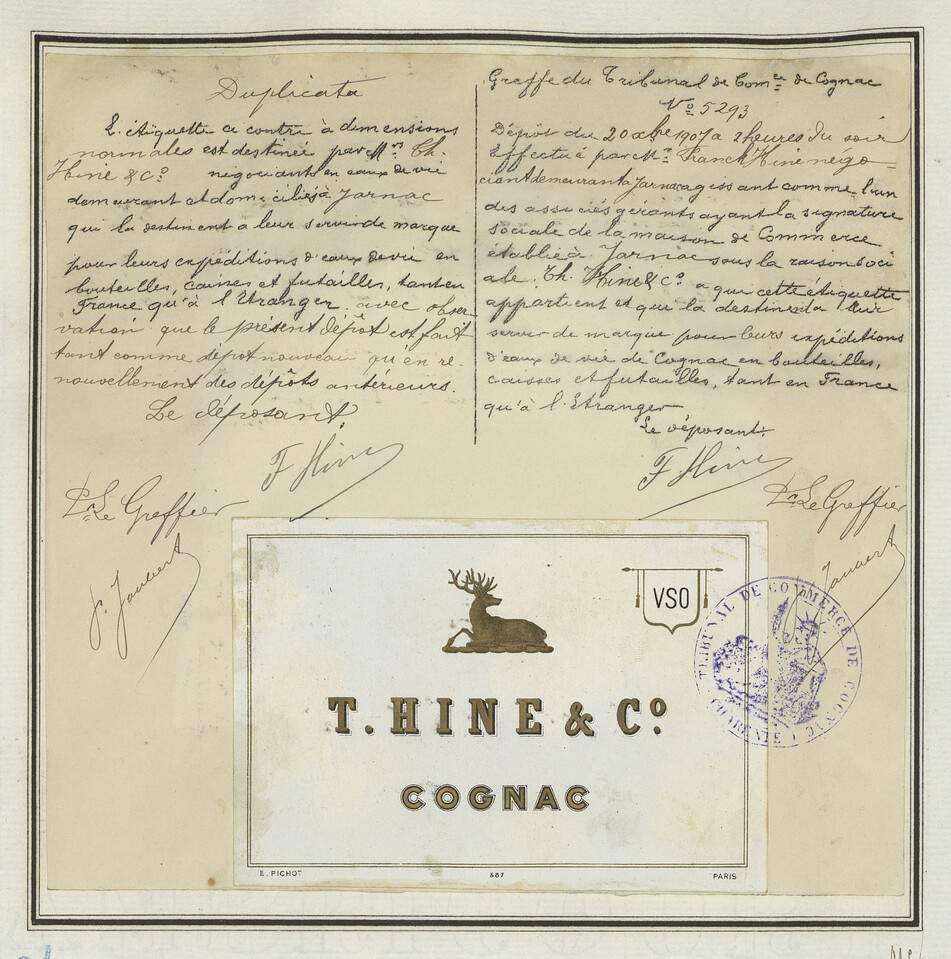 Duplicata
L'étiquette ci contre à dimensions
normales est destinée par Mrs Th.
Hine & Co negociants en eaux de vie
demeurant et domiciliés à Jarnac
qui la destinent a leur servir de marque
pour leurs expéditions d'eaux de vie en
bouteilles, caisses et futailles, tant en
France qu'à l'Etranger avec obser-
vation que le présent dépôt est fait
tant comme dépôt nouveau qu'en re-
nouvellement des dépôts antérieurs.
Le déposant,
F Hine
Pr Le Greffier
J. Jaubert
Greffe du Tribunal de Comce de Cognac
No 5293
Dépôt du 20 xbre 1907 a 2 heures du soir
Effectué par Mr Franck Hine négo-
ciant demeurant a Jarnac agissant comme l'un
des associés gérants ayant la signature
sociale de la maison de Commerce
établie à Jarnac sous la raison soci
ale. Th. Hine & Co a qui cette étiquette
appartient et qui la destine à leur
servir de marque pour leurs expéditions
d'eaux de vie de Cognac en bouteilles,
caisses et futailles, tant en France
qu'à l'Etranger
Le déposant.
F Hine
Pr Le Greffier
Jaubert
VSO
TRIBUNAL DE COMMERCE DE COGNAC (CHARENTE)
T. HINE & Co
COGNAC
E. PICHOT 587 PARIS